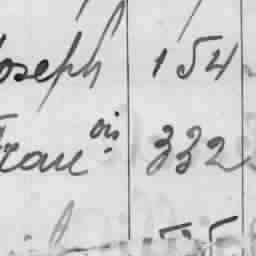 Joseph 154
Franc ois 332